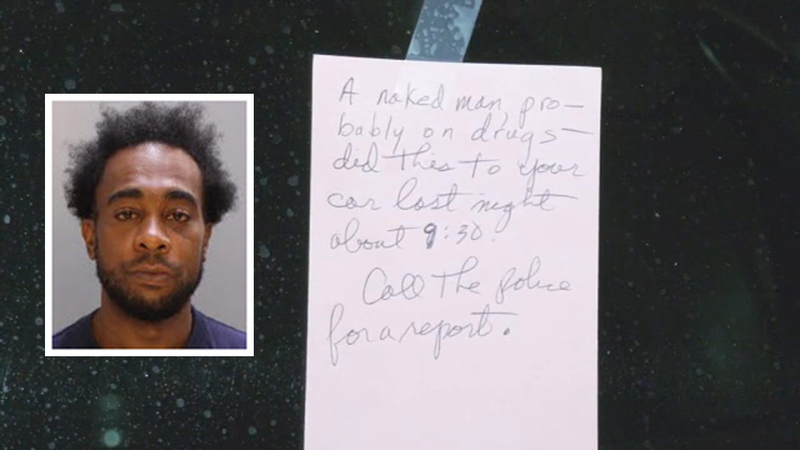 A naked man, pro-
bably on drugs-
did this to your
car last night
about 9:30.
Call the police
for a report.